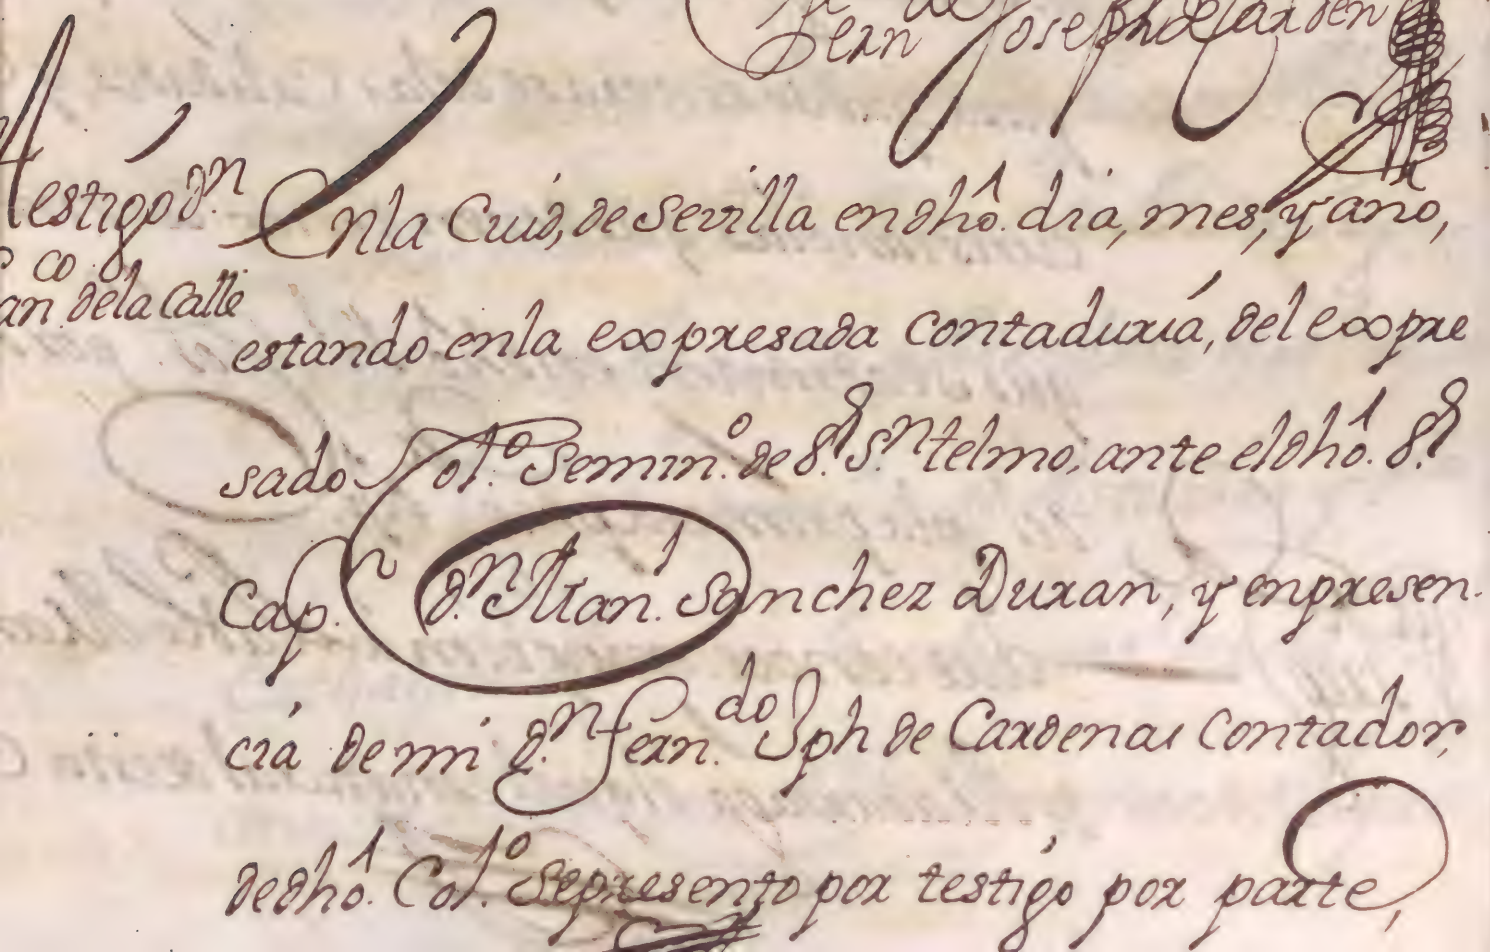 Fern Joseph de Carden
Testigo Dn.
co
an. de la Calle
En la Ciud, de Sevilla en dho. dia, mes, y ano,
estando en la expresada contaduria, del expre
sado Colo. Semino. de Sr. Sn. telmo, ante el dho. Sr.
Capn. Dn. Man. Sanchez Duran, y en presen.
cia de mi Dn. Fern.do Jph de Cardenas Contador,
de dho. Colo. Se presento por testigo por parte,